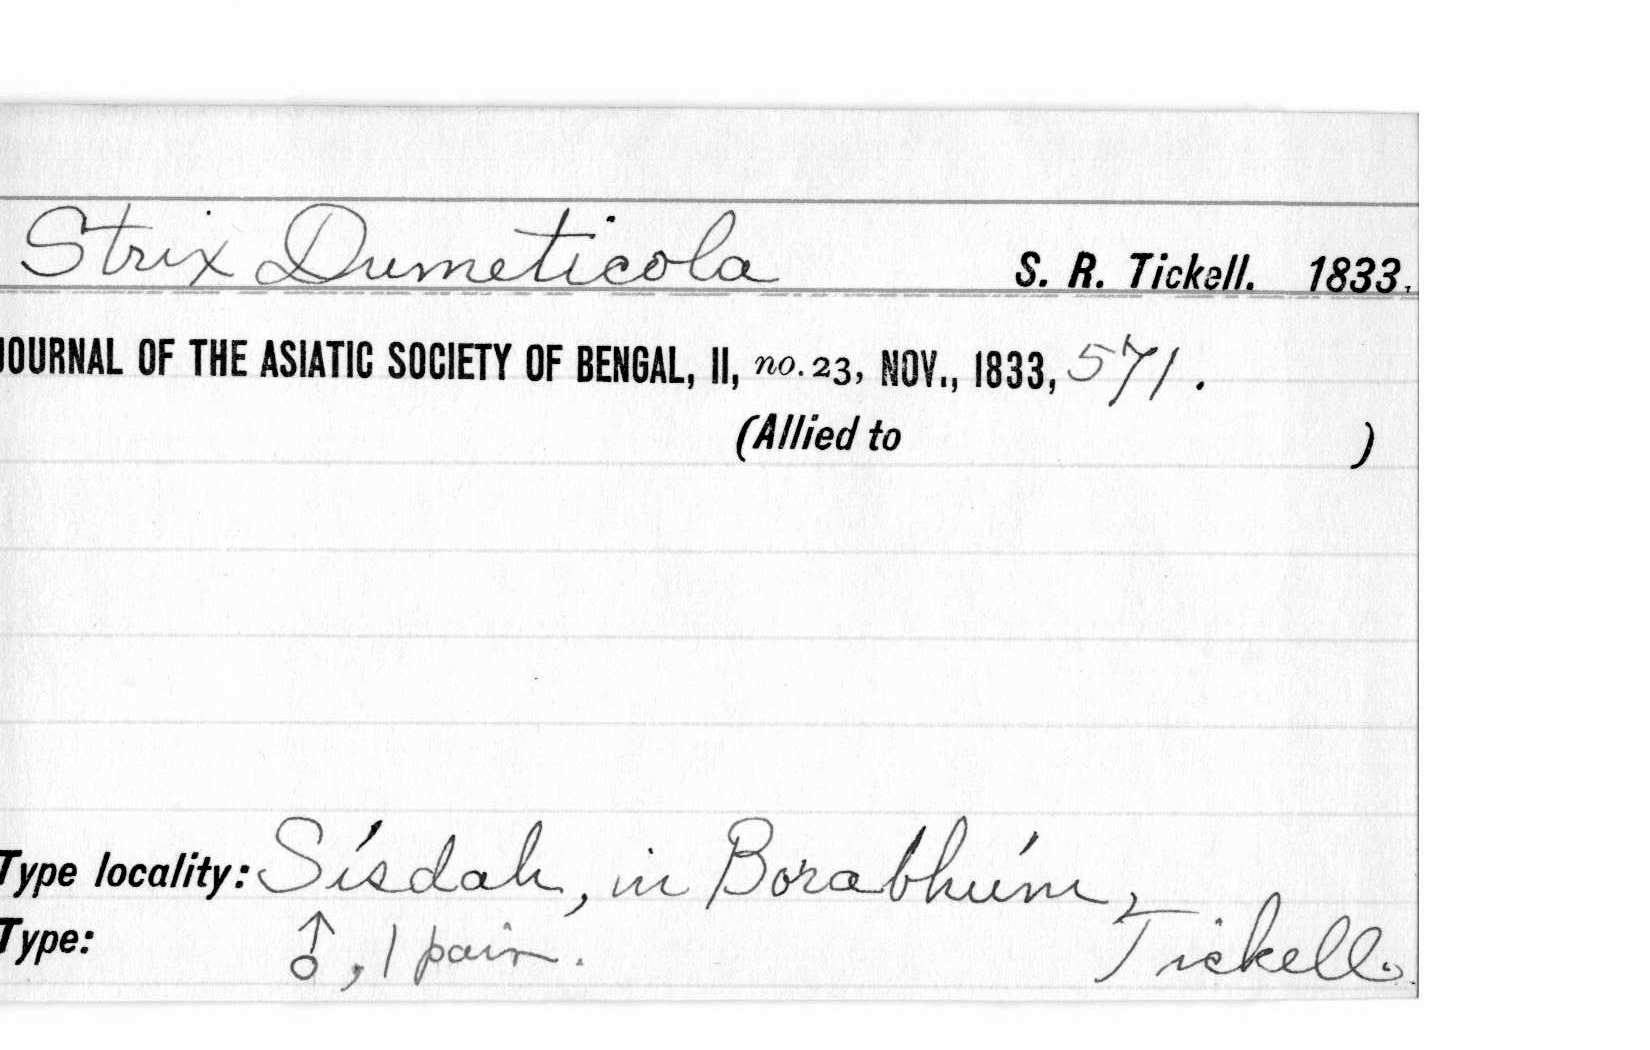 Strix Dumeticola S. R. Tickell. 1833.
JOURNAL OF THE ASIATIC SOCIETY OF BENGAL, II, no. 23, NOV., 1833, 571.
(Allied to )
Type locality: Sísdah, in Borabhúm,
Type: ♂, 1 pair. Tickell.